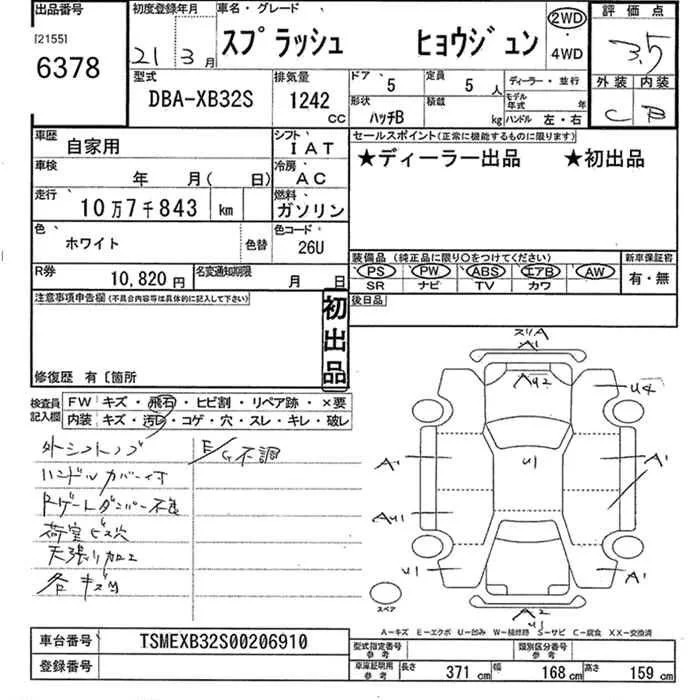 出品番号
[2155]
6378
初度登録年月
21 年 3 月
車名・グレード
スプラッシュ ヒョウジュン
2WD
・
4WD
評価点
3.5
外装 内装
C B
型式
DBA-XB32S
排気量
1242
CC
ドア
5
定員
5 人
形状
ハッチB
積載
kg
ディーラー・並行
モデル年式 年
ハンドル 左・右
車歴
自家用
シフト
IAT
車検
年 月( 日)
冷房
AC
走行
10万7千843 km
燃料
ガソリン
色
ホワイト
色替
色コード
26U
R券
10,820 円
名変通知期限
月 日
セールスポイント(正常に機能するものに限ります)
★ディーラー出品 ★初出品
装備品 (純正品に限り○をつけてください)
PS PW ABS エアB AW
SR ナビ TV カワ
新車保証書
有・無
後日品
注意事項申告欄(不具合内容等は具体的に記入して下さい)
初出品
修復歴 有〔箇所
検査員記入欄
FW キズ・飛石・ヒビ割・リペア跡・×要
内装 キズ・汚レ・コゲ・穴・スレ・キレ・破レ
外シフトノブ
ハンドルカバー付
Rゲートダンパー不良
荷室ビス穴
天張り加工
各キズ凹
E/G不調
スリA
A1
AU2
U4
A1
U1
A1
AU1
U1
A1
A2
U1
スペア
A-キズ E-エクボ U-凹み W-補修跡 S-サビ C-腐食 XX-交換済
車台番号
TSMEXB32S00206910
登録番号
型式指定番号
参考
類別区分番号
参考
車庫証明用
参考
長さ 371 cm 幅 168 cm 高さ 159 cm